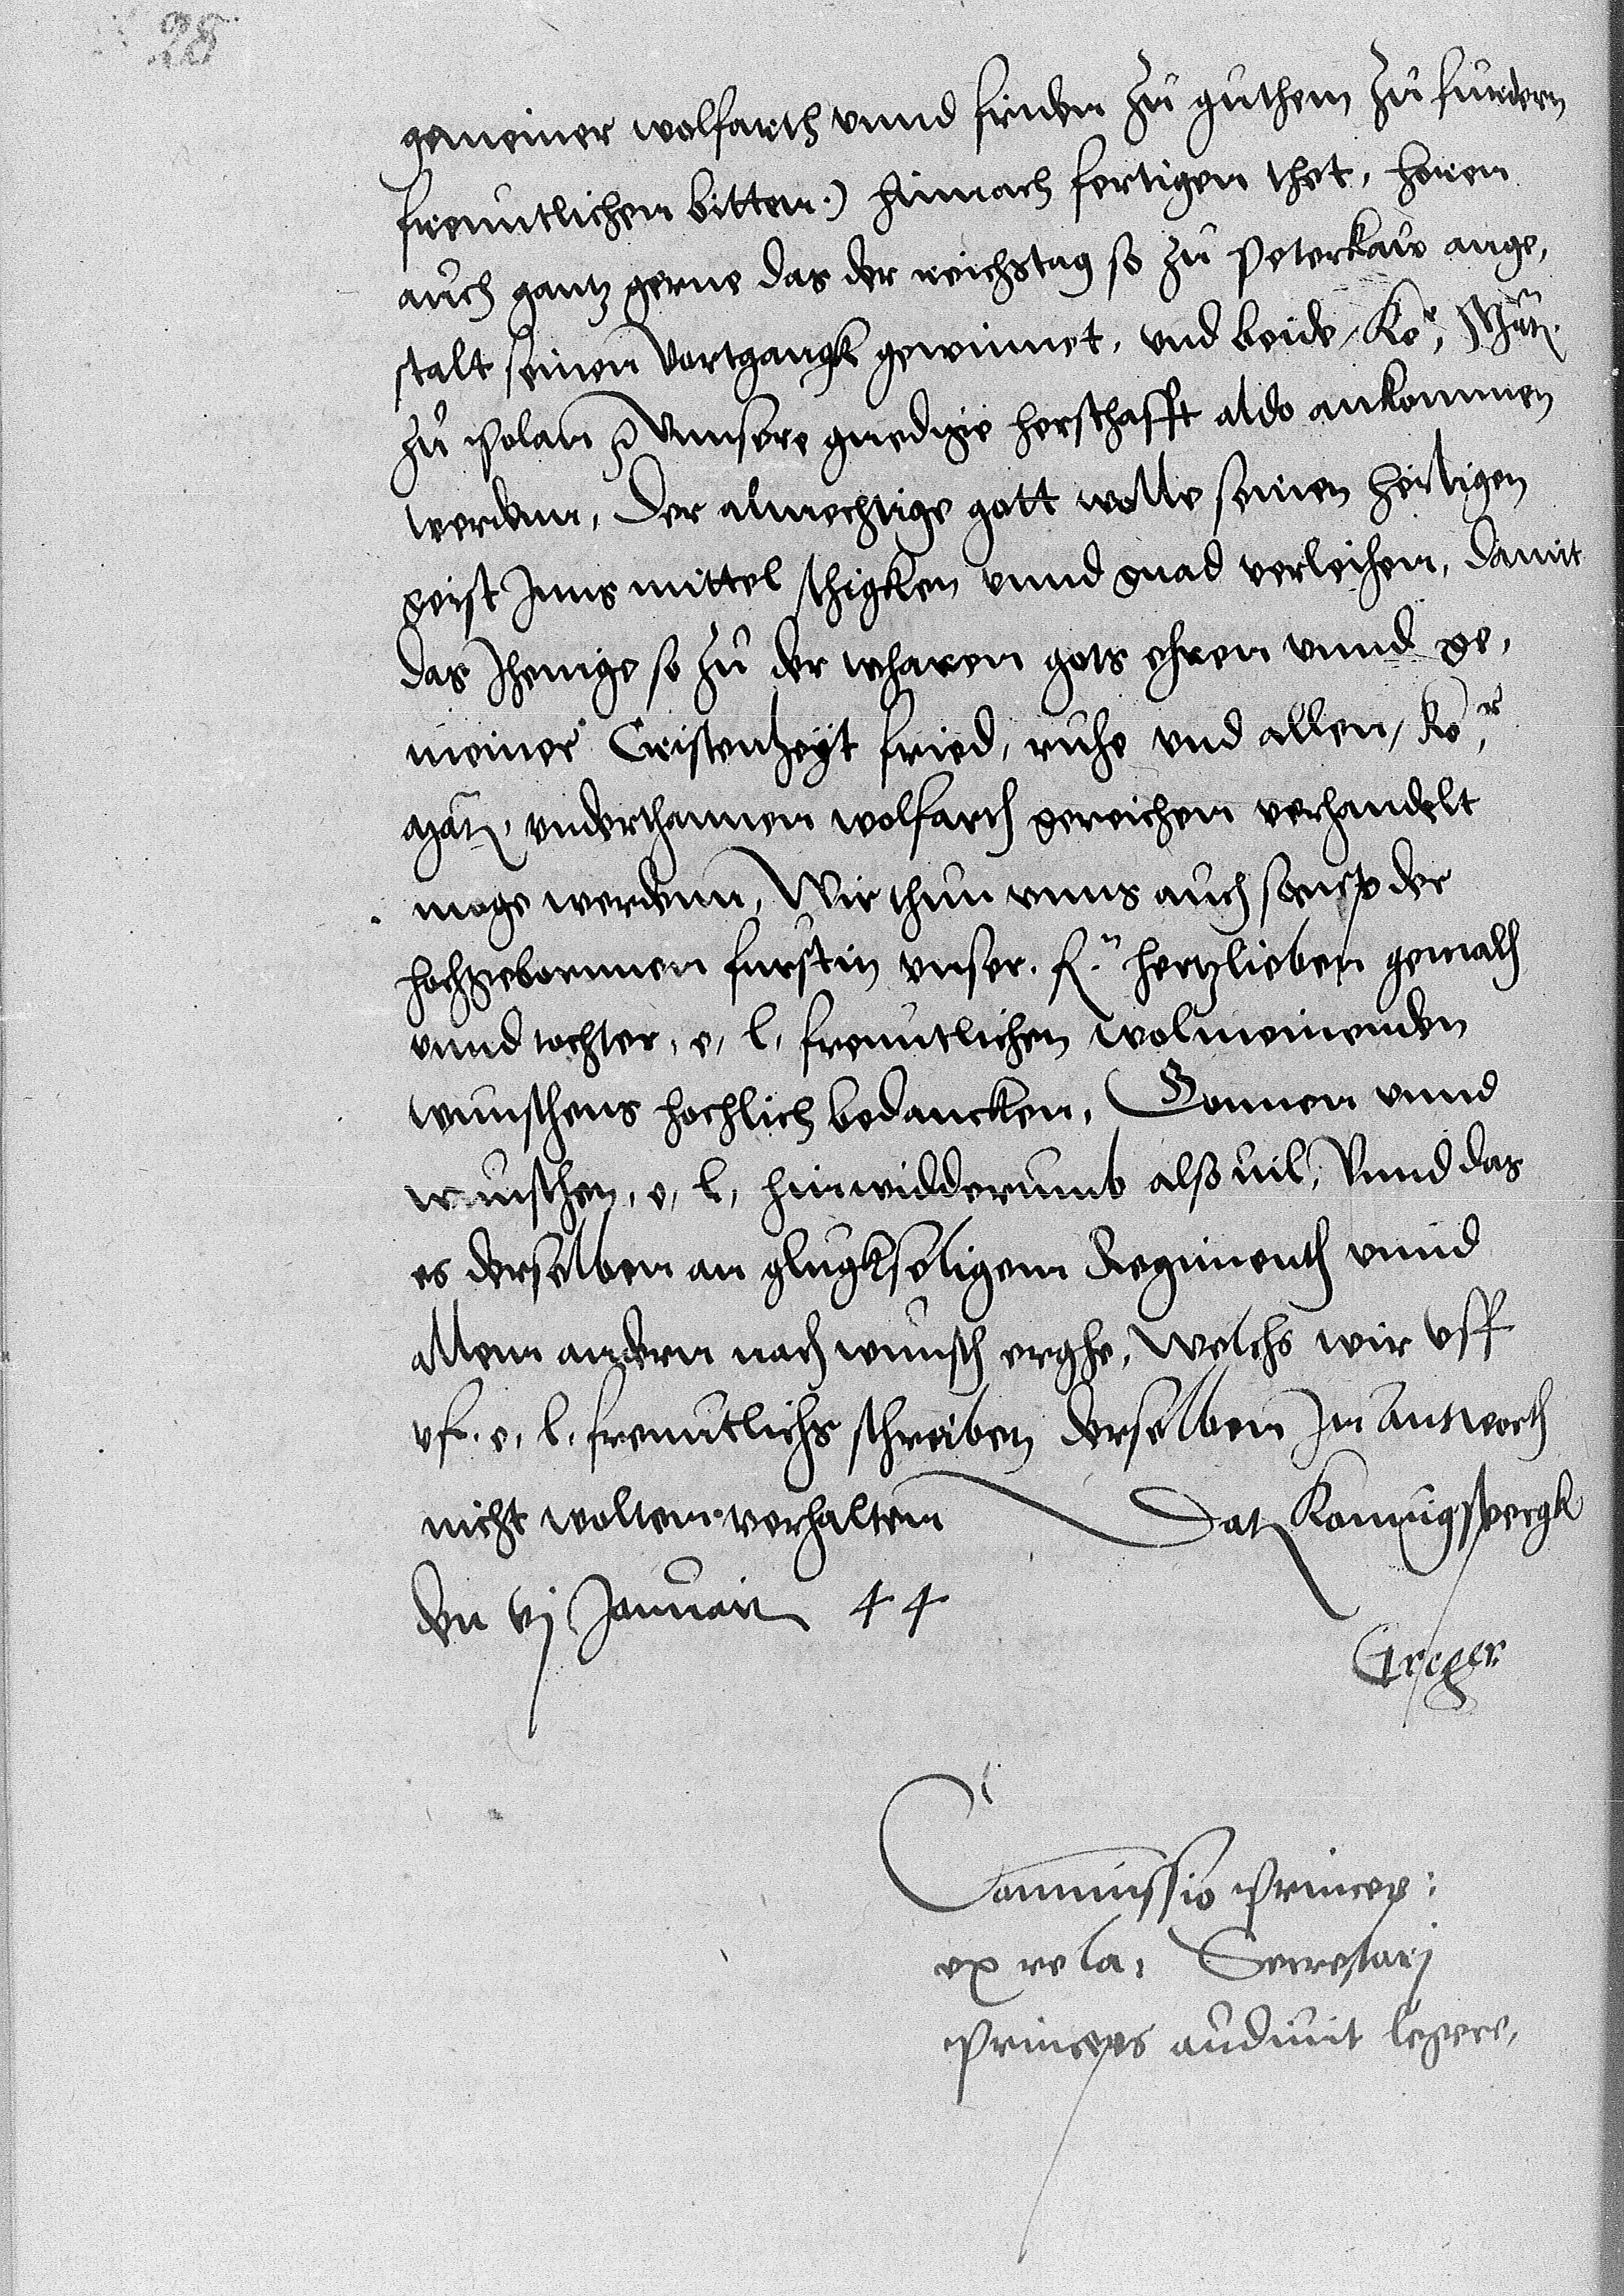 28
gemeiner wolfarth vnnd friden zu guthem zu furdern
freuntlichen bitten.) hinnach fertigen thet, horen
auch gantz gerne das der reichstag so zu Peterkaw ange,
stalt seinen vortgangk gewinnet, vnd beide, Ko,r Mat.
zu Polan vnnsere gnedige herschafft aldo ankommen
werdenn, Der almechtige gott wolle seinen heiligen
geist Inns mittel schigken vnnd gnad verleihen, damit
das Jhenige so zu der wharen gots ehren vnnd ge,
meiner Cristenheyt fried, ruhe vnd allen, ko,r
Mat, vnderthannen wolfarth gereichen verhandelt
moge werdenn, Wir thun vnns auch sampt der
hochgebornnen furstin vnser. f.n hertzlieben gemalh
vnnd tochter, e, l, freuntlichen wolmeinenden
wunschens hochlich bedancken, Gonnen vnnd
wunschen, e, l, hinwidderumb also uil, Vnnd das
es derselben an glugkseligem Regimenth vnnd
allem andern nach wunsch erghe, Welchs wir vff
vf. e, l. freuntlichs schreiben derselben In antworth
nicht wolten verhalten Dat Konnigspergk
den vj Januarij 44
Creizer
Commissio Princep:
ex rela: Secretarij
Princeps audiuit legere,